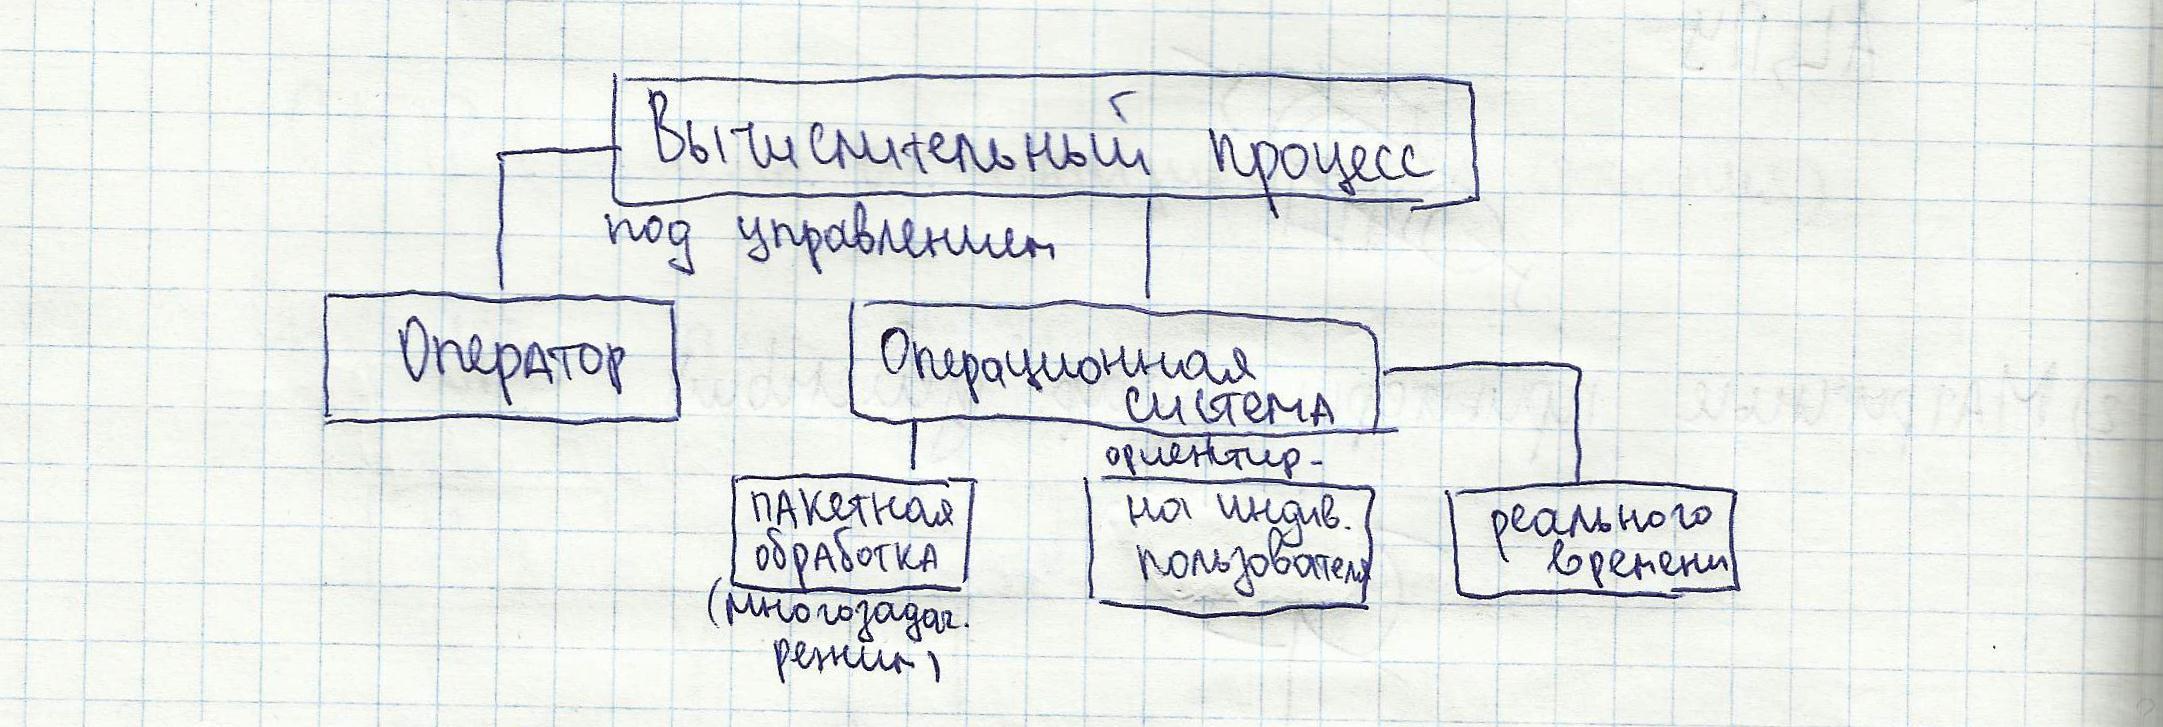 Вычислительный процесс
под управлением
Оператор
Операционная
система
пакетная
обработка
(многозадач.
режим)
ориентир-
на индив.
пользователя
реального
времени